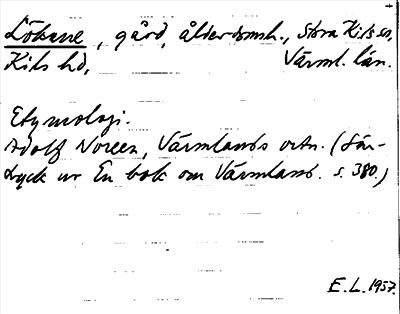 Lökene, gård, ålderdomsh., Stora Kils sn,
Kils hd, Värml. län.
Etymologi.
Adolf Noreen, Värmlands ortn. (Sär-
tryck ur En bok om Värmland. s. 380.)
E.L. 1957.